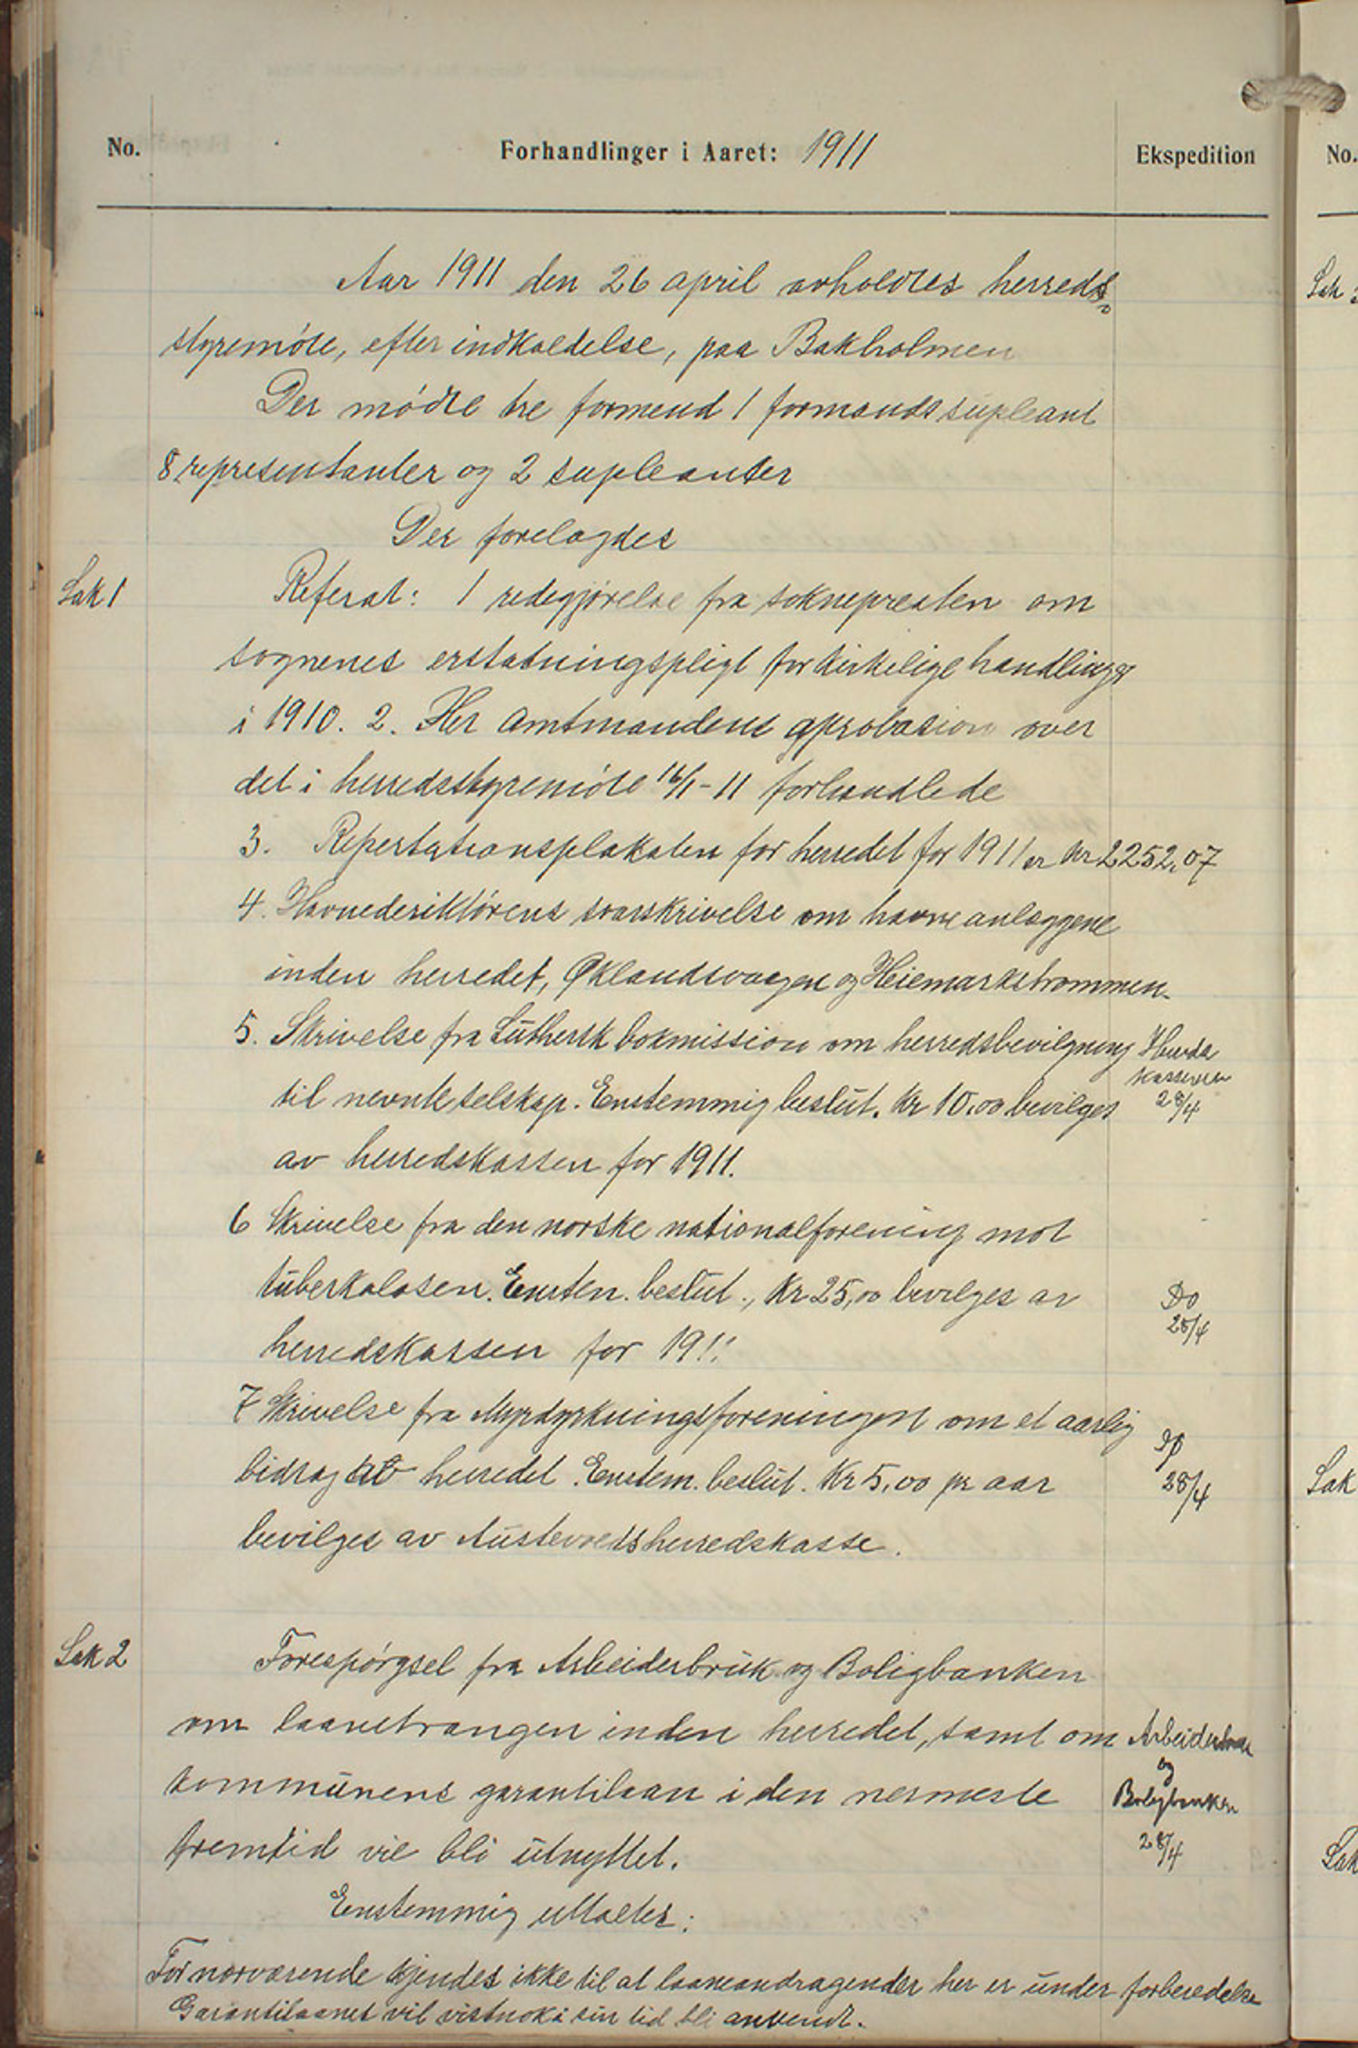 No. Forhandlinger i Aaret: 1911 Ekspedition No.
Aar 1911 den 26 april avholdtes herreds-
styremöte, efter indkaldelse, paa Bakholmen
Der mödte tre formend 1 formandssupleant
8 representanter og 2 supleanter
Der forelagdes
Sak 1 Referat: 1 redegjörelse fra sokneprესten om
sognenes erstatningspligt for kirkelige handlinger
i 1910. 2. Her Amtmandens aprobasion over
det i herredsstyremöte 16/1-11 forhandlede
3. Repertationsplakaten for herredet for 1911 er Kr 2252,07
4. Havnedirektörens svarskrivelse om havneanlæggene
inden herredet, Øklandsvaagen og Heiemarkstrommen.
5. Skrivelse fra Luthersk bokmission om herredsbevilgning
til nevnte selskap. Enstemmig beslut. Kr 10.00 bevilges
av herredskassen for 1911.
Herreds
kasseren
28/4
6 Skrivelse fra den norske nationalforening mot
tuberkolosen. Enstem. beslut., Kr 25,00 bevilges av
herredskassen for 1911
Do
28/4
7 Skrivelse fra Myrdyrkningsforeningen om et aarlig
bidrag av herredet. Enstem. beslut. Kr 5,00 pr aar
bevilges av Austevolds herredskasse.
28/4
Sak 2 Forespörgsel fra Arbeiderbruk og Boligbanken
om laanetrangen inden herredet, samt om
kommunens garantilaan i den nermeste
fremtid vil bli utnyttet.
Arbeiderbruk
og
Boligbanken
28/4
Enstemmig uttaltes:
For nærværende kjendes ikke til at laaneandragender her er under forberedelse
Garantilaanet vil vistnok i sin tid bli anvendt.
Sak
Sak
Sak